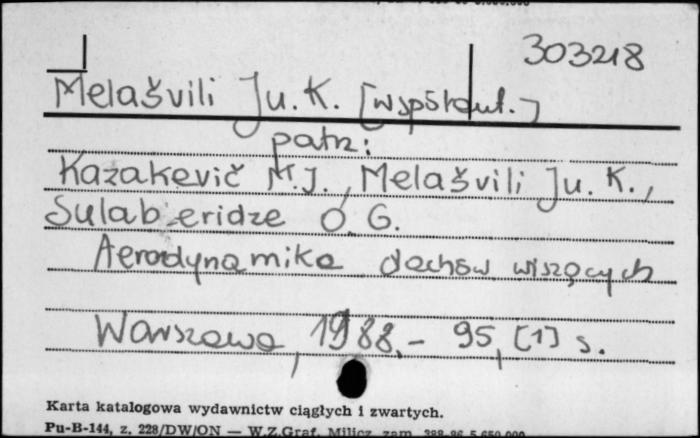 303218
Melašvili Ju. K. [współaut.]
patrz:
Kazakevič M.I., Melašvili Ju. K.,
Sulaberidze O. G.
Aerodynamika dachów wiszących
Warszawa, 1988.- 95, [1] s.
Karta katalogowa wydawnictw ciągłych i zwartych.
Pu-B-144, z. 228/DW/ON — W.Z.Graf. Milicz, zam. 388-86 5.650.000